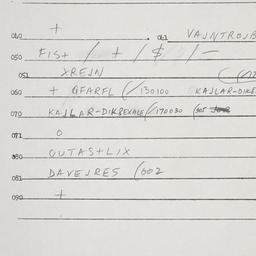 040 + 041 VAJNTROJB
050 FIS+ / + / $ / -
051 XREJN
060 + QFARFL (/130100 KAJLAR-DIKS
070 KAJLAR-DIKREXALE(/170030 (305
071 0
080 OUTAS+LIX
081 DAVEJRES (602
090 +